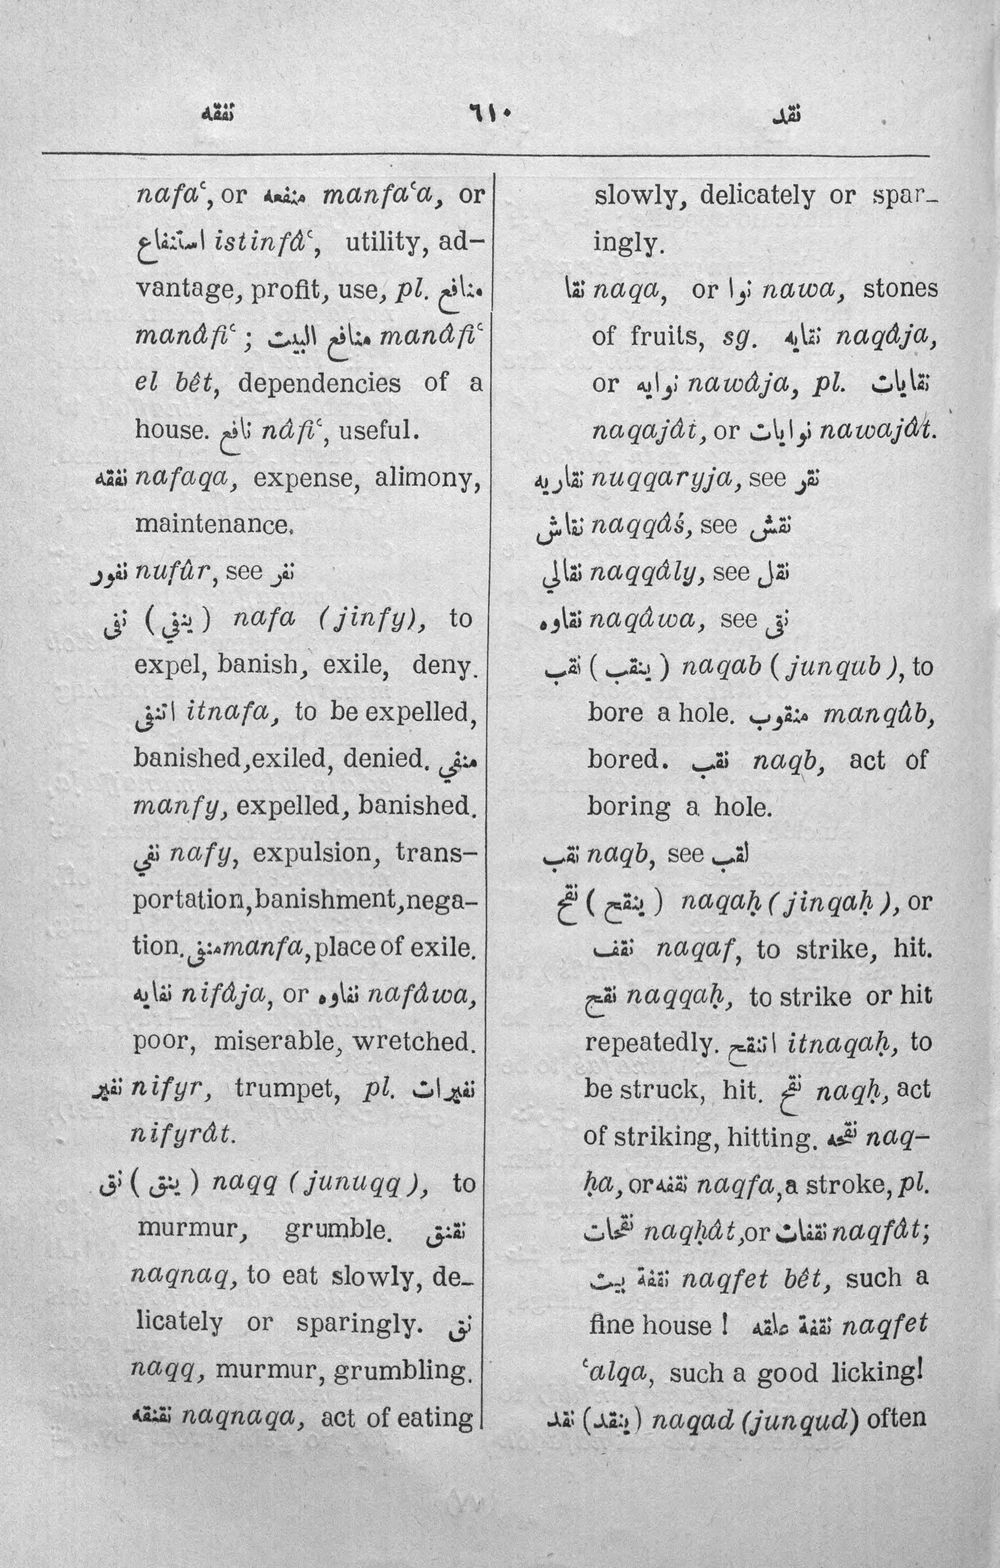 نفقه ٦١٠ نقد
nafaʿ, or منفعه manfaʿa, or
استنفاع istinfâʿ, utility, ad-
vantage, profit, use, pl. منافع
manâfiʿ ; منافع البيت manâfiʿ
el bêt, dependencies of a
house. نافع nâfiʿ, useful.
نفقه nafaqa, expense, alimony,
maintenance.
نفور nufûr, see نفر
نفى (ينفي) nafa (jinfy), to
expel, banish, exile, deny.
اتنفى itnafa, to be expelled,
banished, exiled, denied. منفي
manfy, expelled, banished.
نفي nafy, expulsion, trans-
portation, banishment, nega-
tion. منفى manfa, place of exile.
نفايه nifâja, or نفاوه nafâwa,
poor, miserable, wretched.
نفير nifyr, trumpet, pl. نفيرات
nifyrât.
نق (ينق) naqq (junuqq), to
murmur, grumble. نقنق
naqnaq, to eat slowly, de-
licately or sparingly. نق
naqq, murmur, grumbling.
نقنقه naqnaqa, act of eating
slowly, delicately or spar-
ingly.
نقا naqa, or نوا nawa, stones
of fruits, sg. نقايه naqâja,
or نوايه nawâja, pl. نقايات
naqajât, or نوايات nawajât.
نقاريه nuqqaryja, see نقر
نقاش naqqâś, see نقش
نقالي naqqâly, see نقل
نقاوه naqâwa, see نقى
نقب (ينقب) naqab (junqub), to
bore a hole. منقوب manqûb,
bored. نقب naqb, act of
boring a hole.
نقب naqb, see لقب
نقح (ينقح) naqaḥ (jinqaḥ), or
نقف naqaf, to strike, hit.
نقح naqqaḥ, to strike or hit
repeatedly. اتنقح itnaqaḥ, to
be struck, hit. نقح naqḥ, act
of striking, hitting. نقحه naq-
ḥa, or نقفه naqfa, a stroke, pl.
نقحات naqḥât, or نقفات naqfât;
نقفة بيت naqfet bêt, such a
fine house ! نقفة علقه naqfet
ʿalqa, such a good licking!
نقد (ينقد) naqad (junqud) often